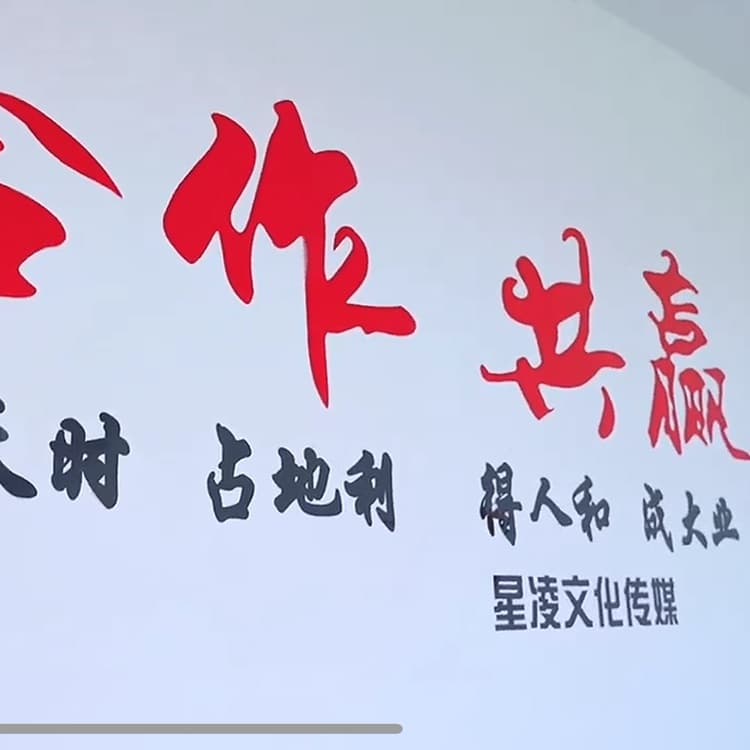 合作 共赢
天时 占地利 得人和 成大业
星凌文化传媒